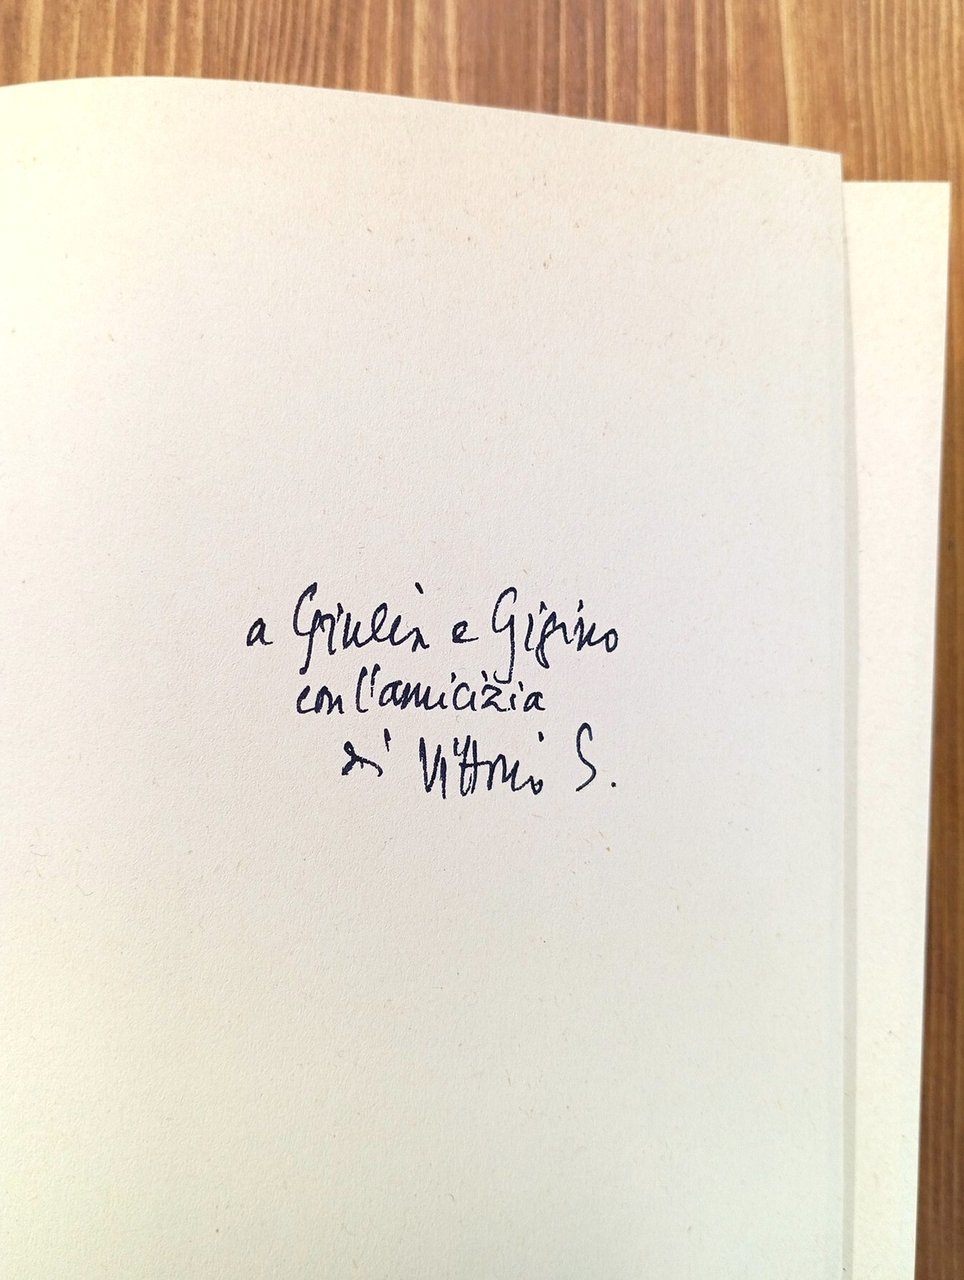 a Giulia e Gigino
con l'amicizia
di Vittorio S.